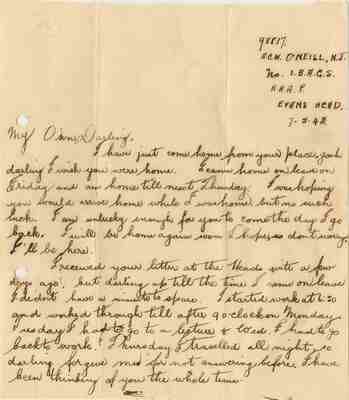 98817.
O'NEILL, N.J.
No. 1. B.A.G.S.
R.A.A.F.
EVANS HEAD.
7-2-42
My Own Darling,
I have just come home from your place, gosh
darling I wish you were home. I came home on leave on
Friday and am home till next Thursday. I was hoping
you would arrive home while I was home but no such
luck. I am unlucky enough for you to come the day I go
back. I will be home again soon I hope so dont worry
I'll be here.
I received your letter at the Heads with a few
days ago, but darling up till the time I came on leave
I didnt have a minute to spare. I started work at
and worked through till after 9 o'clock on Monday
Tuesday I had to go to a lecture & Wed. I had to go
back to work! Thursday I travelled all night, so
darling forgive me for not answering before I have
been thinking of you the whole time